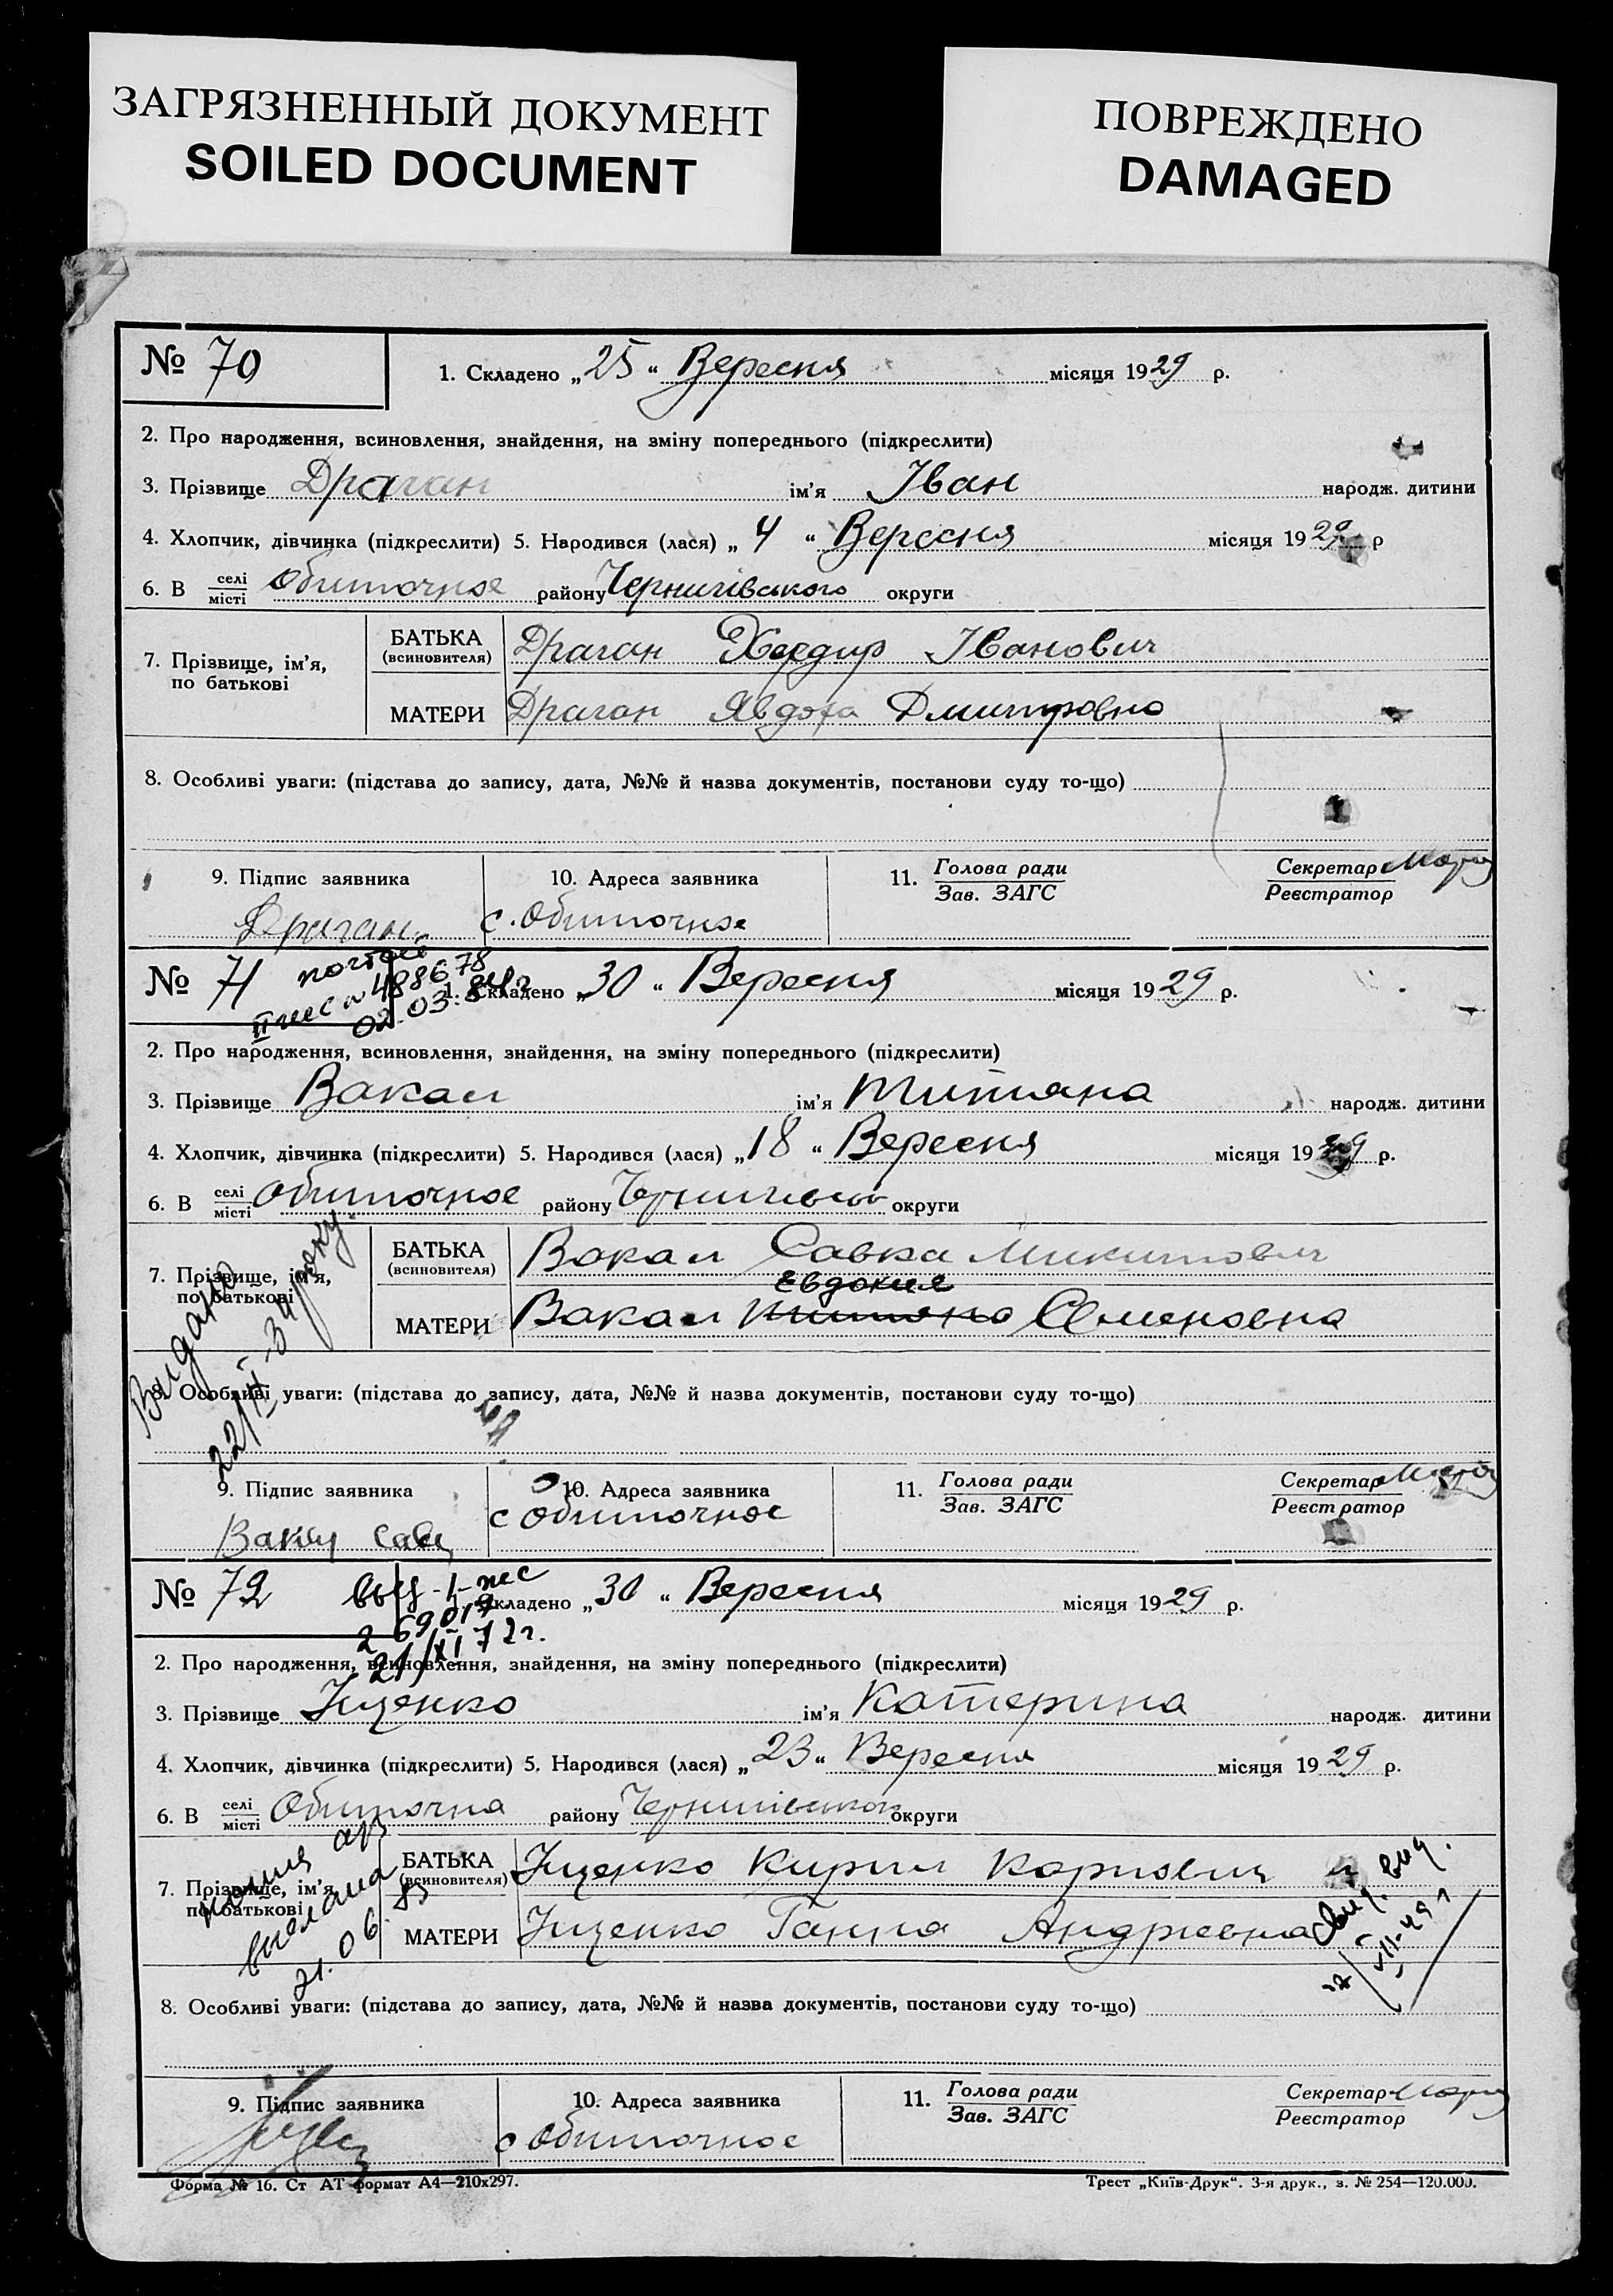 ЗАГРЯЗНЕННЫЙ ДОКУМЕНТ
SOILED DOCUMENT
ПОВРЕЖДЕНО
DAMAGED
№ 70
1. Складено „25“ Вересня місяця 1929 р.
2. Про народження, всиновлення, знайдення, на зміну попереднього (підкреслити)
3. Прізвище Драган ім’я Іван народж. дитини
4. Хлопчик, дівчинка (підкреслити) 5. Народився (лася) „4“ Вересня місяця 1929 р
6. В селі/місті Обиточное району Чернигівського округи
7. Прізвище, ім’я, по батькові
БАТЬКА (всиновителя) Драган Іванович
МАТЕРИ Драган Явдоха Дмитровна
8. Особливі уваги: (підстава до запису, дата, №№ й назва документів, постанови суду то-що)
9. Підпис заявника
10. Адреса заявника
11. Голова ради/Зав. ЗАГС
Секретар/Реєстратор
Драган
с. Обиточное
№ 71
488678
02.03.
1. Складено „30“ Вересня місяця 1929 р.
2. Про народження, всиновлення, знайдення, на зміну попереднього (підкреслити)
3. Прізвище Вакал ім’я Титяна народж. дитини
4. Хлопчик, дівчинка (підкреслити) 5. Народився (лася) „18“ Вересня місяця 1929 р.
6. В селі/місті Обиточное району округи
7. Прізвище, ім’я, по батькові
БАТЬКА (всиновителя) Вакал Савка Микитович
Евдокия
МАТЕРИ Вакал Титяна Семеновна
Видано
8. Особливі уваги: (підстава до запису, дата, №№ й назва документів, постанови суду то-що)
9. Підпис заявника
10. Адреса заявника
11. Голова ради/Зав. ЗАГС
Секретар/Реєстратор
с Обиточное
№ 72
269019
21/XI 72г.
1. Складено „30“ Вересня місяця 1929 р.
2. Про народження, всиновлення, знайдення, на зміну попереднього (підкреслити)
3. Прізвище Іщенко ім’я Катерина народж. дитини
4. Хлопчик, дівчинка (підкреслити) 5. Народився (лася) „23“ Вересня місяця 1929 р.
6. В селі/місті Обиточна району Чернигівського округи
7. Прізвище, ім’я, по батькові
БАТЬКА (всиновителя) Іщенко Кирил Карпович
МАТЕРИ Іщенко Ганна Андриевна
21.06.
8. Особливі уваги: (підстава до запису, дата, №№ й назва документів, постанови суду то-що)
9. Підпис заявника
10. Адреса заявника
11. Голова ради/Зав. ЗАГС
Секретар/Реєстратор
с Обиточное
Форма № 16. Ст АТ формат А4—210х297.
Трест „Київ-Друк“. 3-я друк., з. № 254—120.000.